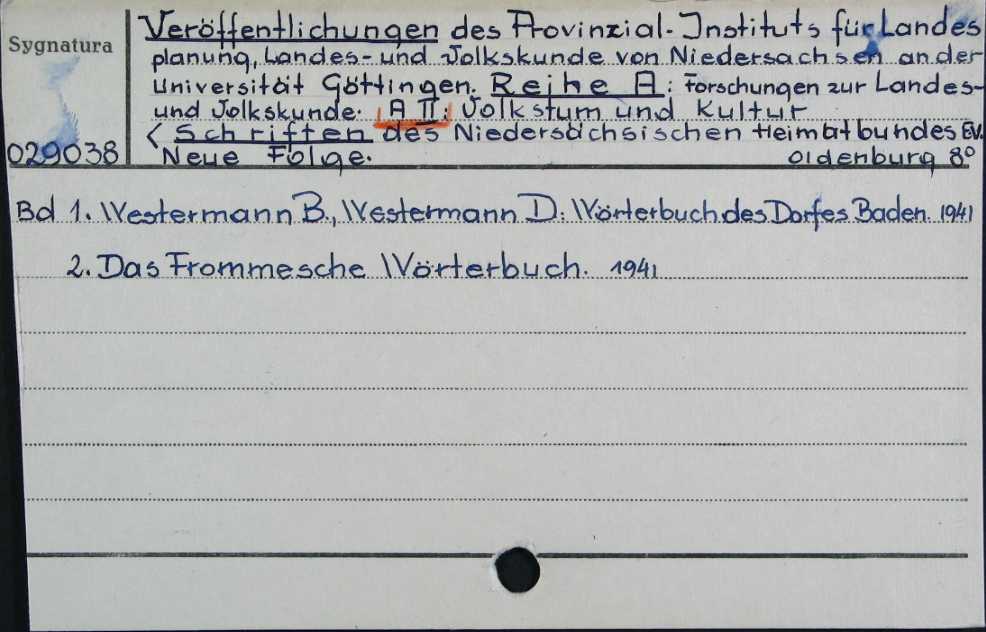 Sygnatura
029038
Veröffentlichungen des Provinzial-Instituts für Landes
planung, Landes- und Volkskunde von Niedersachsen an der
Universität Göttingen. Reihe A: Forschungen zur Landes-
und Volkskunde. A II: Volkstum und Kultur
< Schriften des Niedersächsischen Heimatbundes E.V.
Neue Folge. Oldenburg 8°
Bd 1. Westermann B., Westermann D: Wörterbuch des Dorfes Baden. 1941
2. Das Frommesche Wörterbuch. 1941